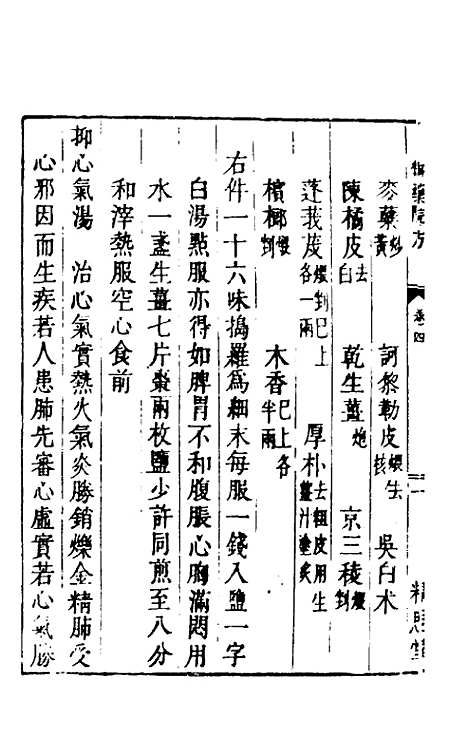 御藥院方 卷四 一
麥糵炒黃 訶黎勒皮煨去核 吳白术
陳橘皮去白 乾生薑炮 京三稜煨剉
蓬莪茂煨剉已上各一兩 厚朴去粗皮用生薑汁塗炙
檳榔煨剉 木香已上各半兩
右件一十六味搗羅為細末每服一錢入鹽一字
白湯點服亦得如脾胃不和腹脹心胸滿悶用
水一盞生薑七片棗兩枚鹽少許同煎至八分
和滓熱服空心食前
抑心氣湯 治心氣實熱火氣炎勝銷爍金精肺受
心邪因而生疾若人患肺先審心虛實若心氣勝